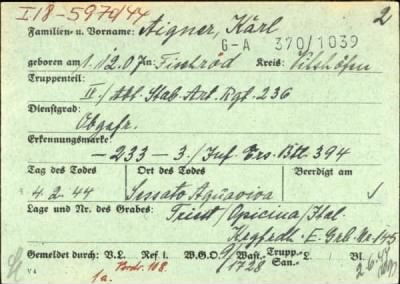 I 18-5970/44
2
Familien- u. Vorname: Aigner, Karl
G-A 370/1039
geboren am 1.12.07 in Fischröd Kreis: Vilshofen
Truppenteil:
II./Abt. Stab Art. Rgt. 236
Dienstgrad:
Obgefr.
Erkennungsmarke:
-233-3./Inf. Ers. Btl. 394
Tag des Todes Ort des Todes Beerdigt am
4.2.44 Sessato Aquaviva
Lage und Nr. des Grabes: Triest/Opicina/Ital.
E. Grb. Nr. 145
Gemeldet durch: V.L. Ref i. W.G.O. Wast.- Trupp.- San.- L. Bl.
1728
1a.
V 4